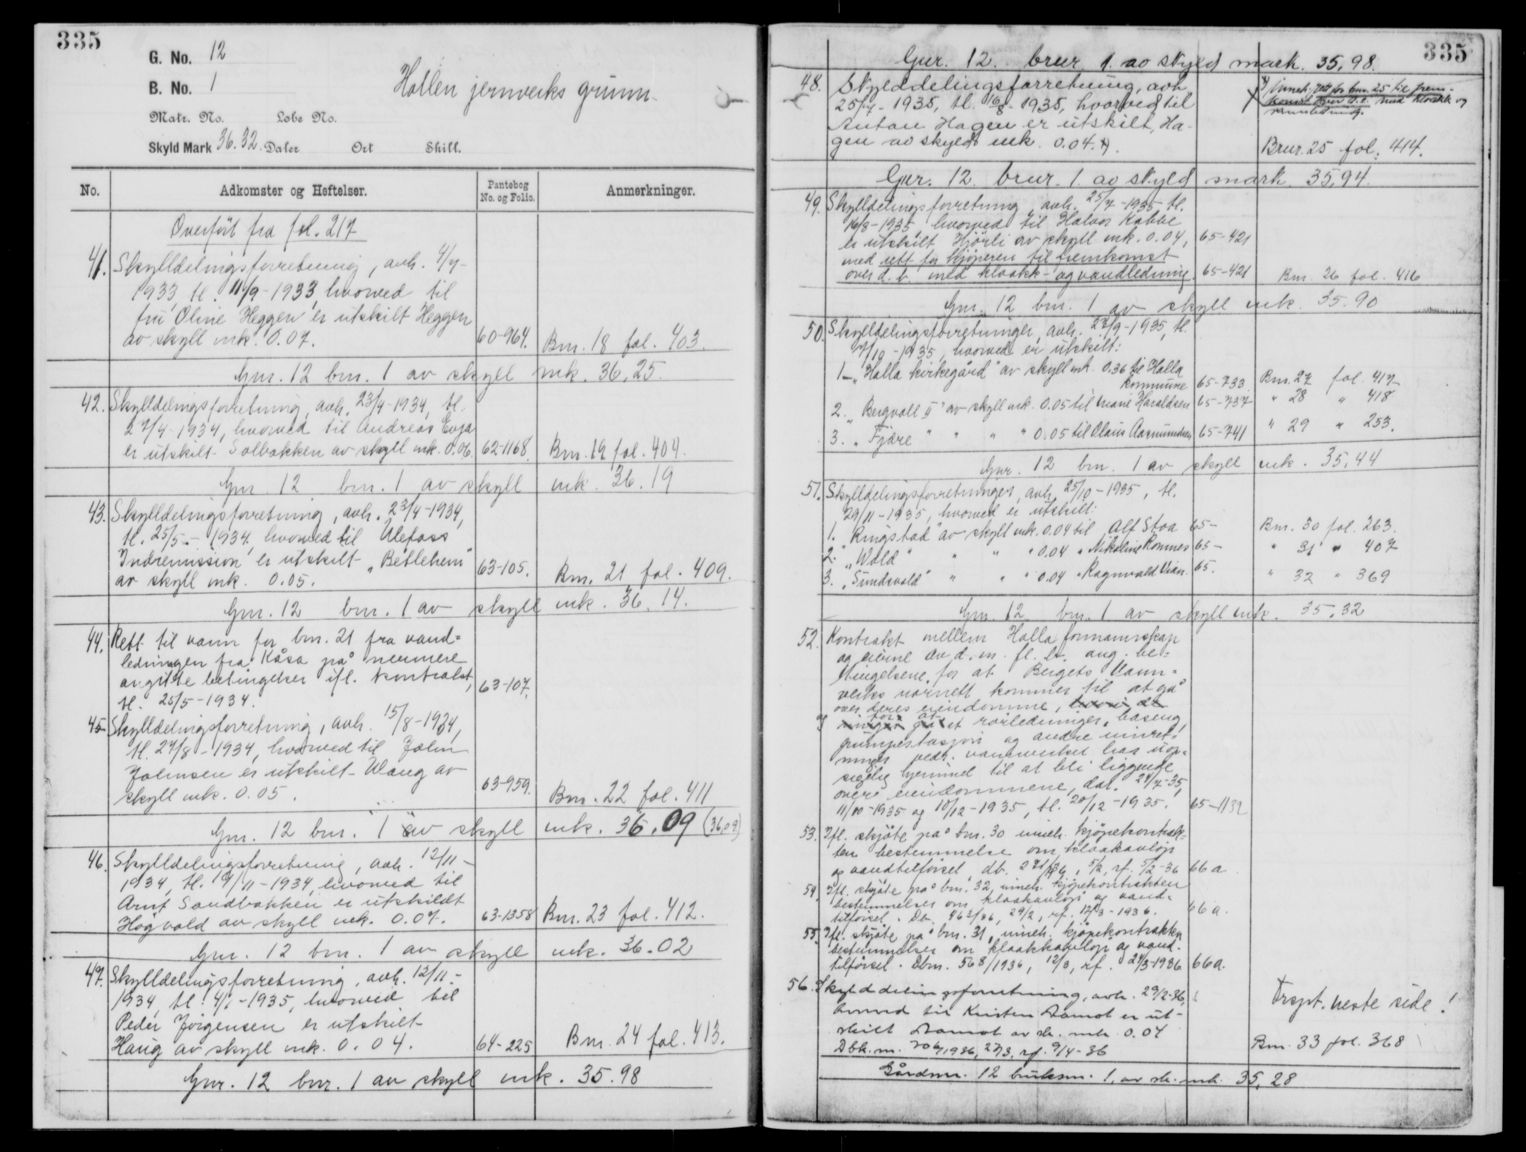 335
G. No. 12
B. No. 1
Hollen jernverks grunn.
Matr. No. Løbe No.
Skyld Mark 36.32. Daler Ort Skill.
No. Adkomster og Heftelser. Pantebog No. og Folio. Anmerkninger.
Overført fra fol. 217
41. Skylldelingsforretning, avh. 4/7-
1933 tl. 11/9-1933, hvorved til
fru Oline Heggen er utskilt Heggen
av skyll mk. 0.07. 60-964. Bnr. 18 fol. 403.
Gnr. 12 bnr. 1 av skyll mk. 36.25.
42. Skylldelingsforretning, avh. 23/4-1934, tl.
27/4-1934, hvorved til Andreas
er utskilt Solbakken av skyll mk. 0.06. 62-1168. Bnr. 19 fol. 404.
Gnr. 12 bnr. 1 av skyll mk. 36.19
43. Skylldelingsforretning, avh. 23/4-1934,
tl. 25/5-1934, hvorved til Ulefoss
Indremission er utskilt "Betlehem"
av skyll mk. 0.05. 63-105. Bnr. 21 fol. 409.
Gnr. 12 bnr. 1 av skyll mk. 36.14.
44. Rett til vann for bnr. 21 fra vand-
ledningen fra Kåsa på nærmere
avgitte betingelser ifl. kontrakt,
tl. 25/5-1934. 63-107.
45. Skylldelingsforretning, avh. 15/8-1934,
tl. 27/8-1934, hvorved til John
Johnsen er utskilt Haug av
skyll mk. 0.05. 63-959. Bnr. 22 fol. 411
Gnr. 12 bnr. 1 av skyll mk. 36.09 (36,09)
46. Skylldelingsforretning, avh. 12/11-
1934, tl. 19/11-1934, hvorved til
Arnt Sandbakken er utskildt
Høgvold av skyll mk. 0.07. 63-1358 Bnr. 23 fol. 412.
Gnr. 12 bnr. 1 av skyll mk. 36.02
47. Skylldelingsforretning, avh. 12/11-
1934, tl. 4/1-1935, hvorved til
Peder Jørgensen er utskilt
Haug av skyll mk. 0.04. 64-225 Bnr. 24 fol. 413.
Gnr. 12 bnr. 1 av skyll mk. 35.98
335
Gnr. 12. bnr. 1. av skyld mark. 35,98.
48. Skylddelingsforretning, avh.
25/7-1935, tl. 16/8-1935, hvorved til
Anton Hagen er utskilt, Ha-
gen av skyld mk. 0.04. Bnr. 25 fol. 414.
Gnr. 12 bnr. 1. av skyld mark. 35,94.
49. Skylldelingsforretning, avh. 25/7-1935 tl.
16/8-1935 hvorved til Halvor Kabbe
er utskilt Hjørli av skyll mk. 0.04, 65-421
med rett for kjøperen til fremkomst
over d.b. med kloakk- og vandledning 65-421 Bnr. 26 fol. 416
Gnr. 12 bnr. 1 av skyll mk. 35.90
50. Skylldelingsforretninger, avh. 23/9-1935, tl.
-1935, hvorved er utskilt:
1. "Holla kirkegård" av skyll mk. 0.36 til Holla
kommune 65-733 Bnr. 27 fol. 417
2. "Bergvoll II" av skyll mk. 0.05 til Marie Haraldsen 65-737 " 28 " 418
3. "Fjære" " " " 0.05 til Olaus Aasmundsen 65-741 " 29 " 253.
Gnr. 12 bnr. 1 av skyll mk. 35,44
51. Skylldelingsforretninger, avh. 25/10-1935, tl.
29/11-1935, hvorved er utskilt:
1. "Ringstad" av skyll mk. 0.04 til Alf Stoa 65- Bnr. 30 fol. 263.
2. "Wold" " " " 0.04 " Nikolai Romnes 65- " 31 " 407
3. "Sundsvold" " " 0.04 " Ragnvald 65. " 32 " 369
Gnr. 12 bnr. 1 av skyll mk. 35,32
52. Kontrakt mellem Holla formannskap
og eierne av d. m. fl. br. ang. be-
tingelsene for at Berget Vann-
verks rørnett kommer til at gå
over deres eiendomme,
for at rørledninger, baseng,
pumpestasjon og andre innret-
ninger vedr. vannverket has uop-
sigelig hjemmel til at bli liggende
over eiendommene, dat. 29/7-35,
11/10-1935 og 10/12-1935, tl. 20/12-1935. 65-1132
53. Ifl. skjøte på bnr. 30 inneh. kjøpekontrak-
ten bestemmelse om kloakkavløp
og vandtilførsel, rf. 5/2-36 66a
54. Ifl. skjøte på bnr. 32, inneh. kjøpekontrakten
bestemmelser om kloakkavløp og vand-
tilførsel. rf. 12/3-1936. 66a.
55. Ifl. skjøte på bnr. 31, inneh. kjøpekontrakten
bestemmelser om kloakkavløp og vand-
tilførsel. Dbnr. 568/1936, 12/3, rf. 24/3-1936 66a.
56. Skylddelingsforretning, avh. 29/2-36,
hvorved til Kristen Aamot er ut-
skilt Aamot av sk. mk. 0.04 Trspt. neste side!
Dbk. nr. rf. 9/4-36 Bnr. 33 fol. 368
Gårdsnr. 12 bruksnr. 1, av sk. mk. 35,28